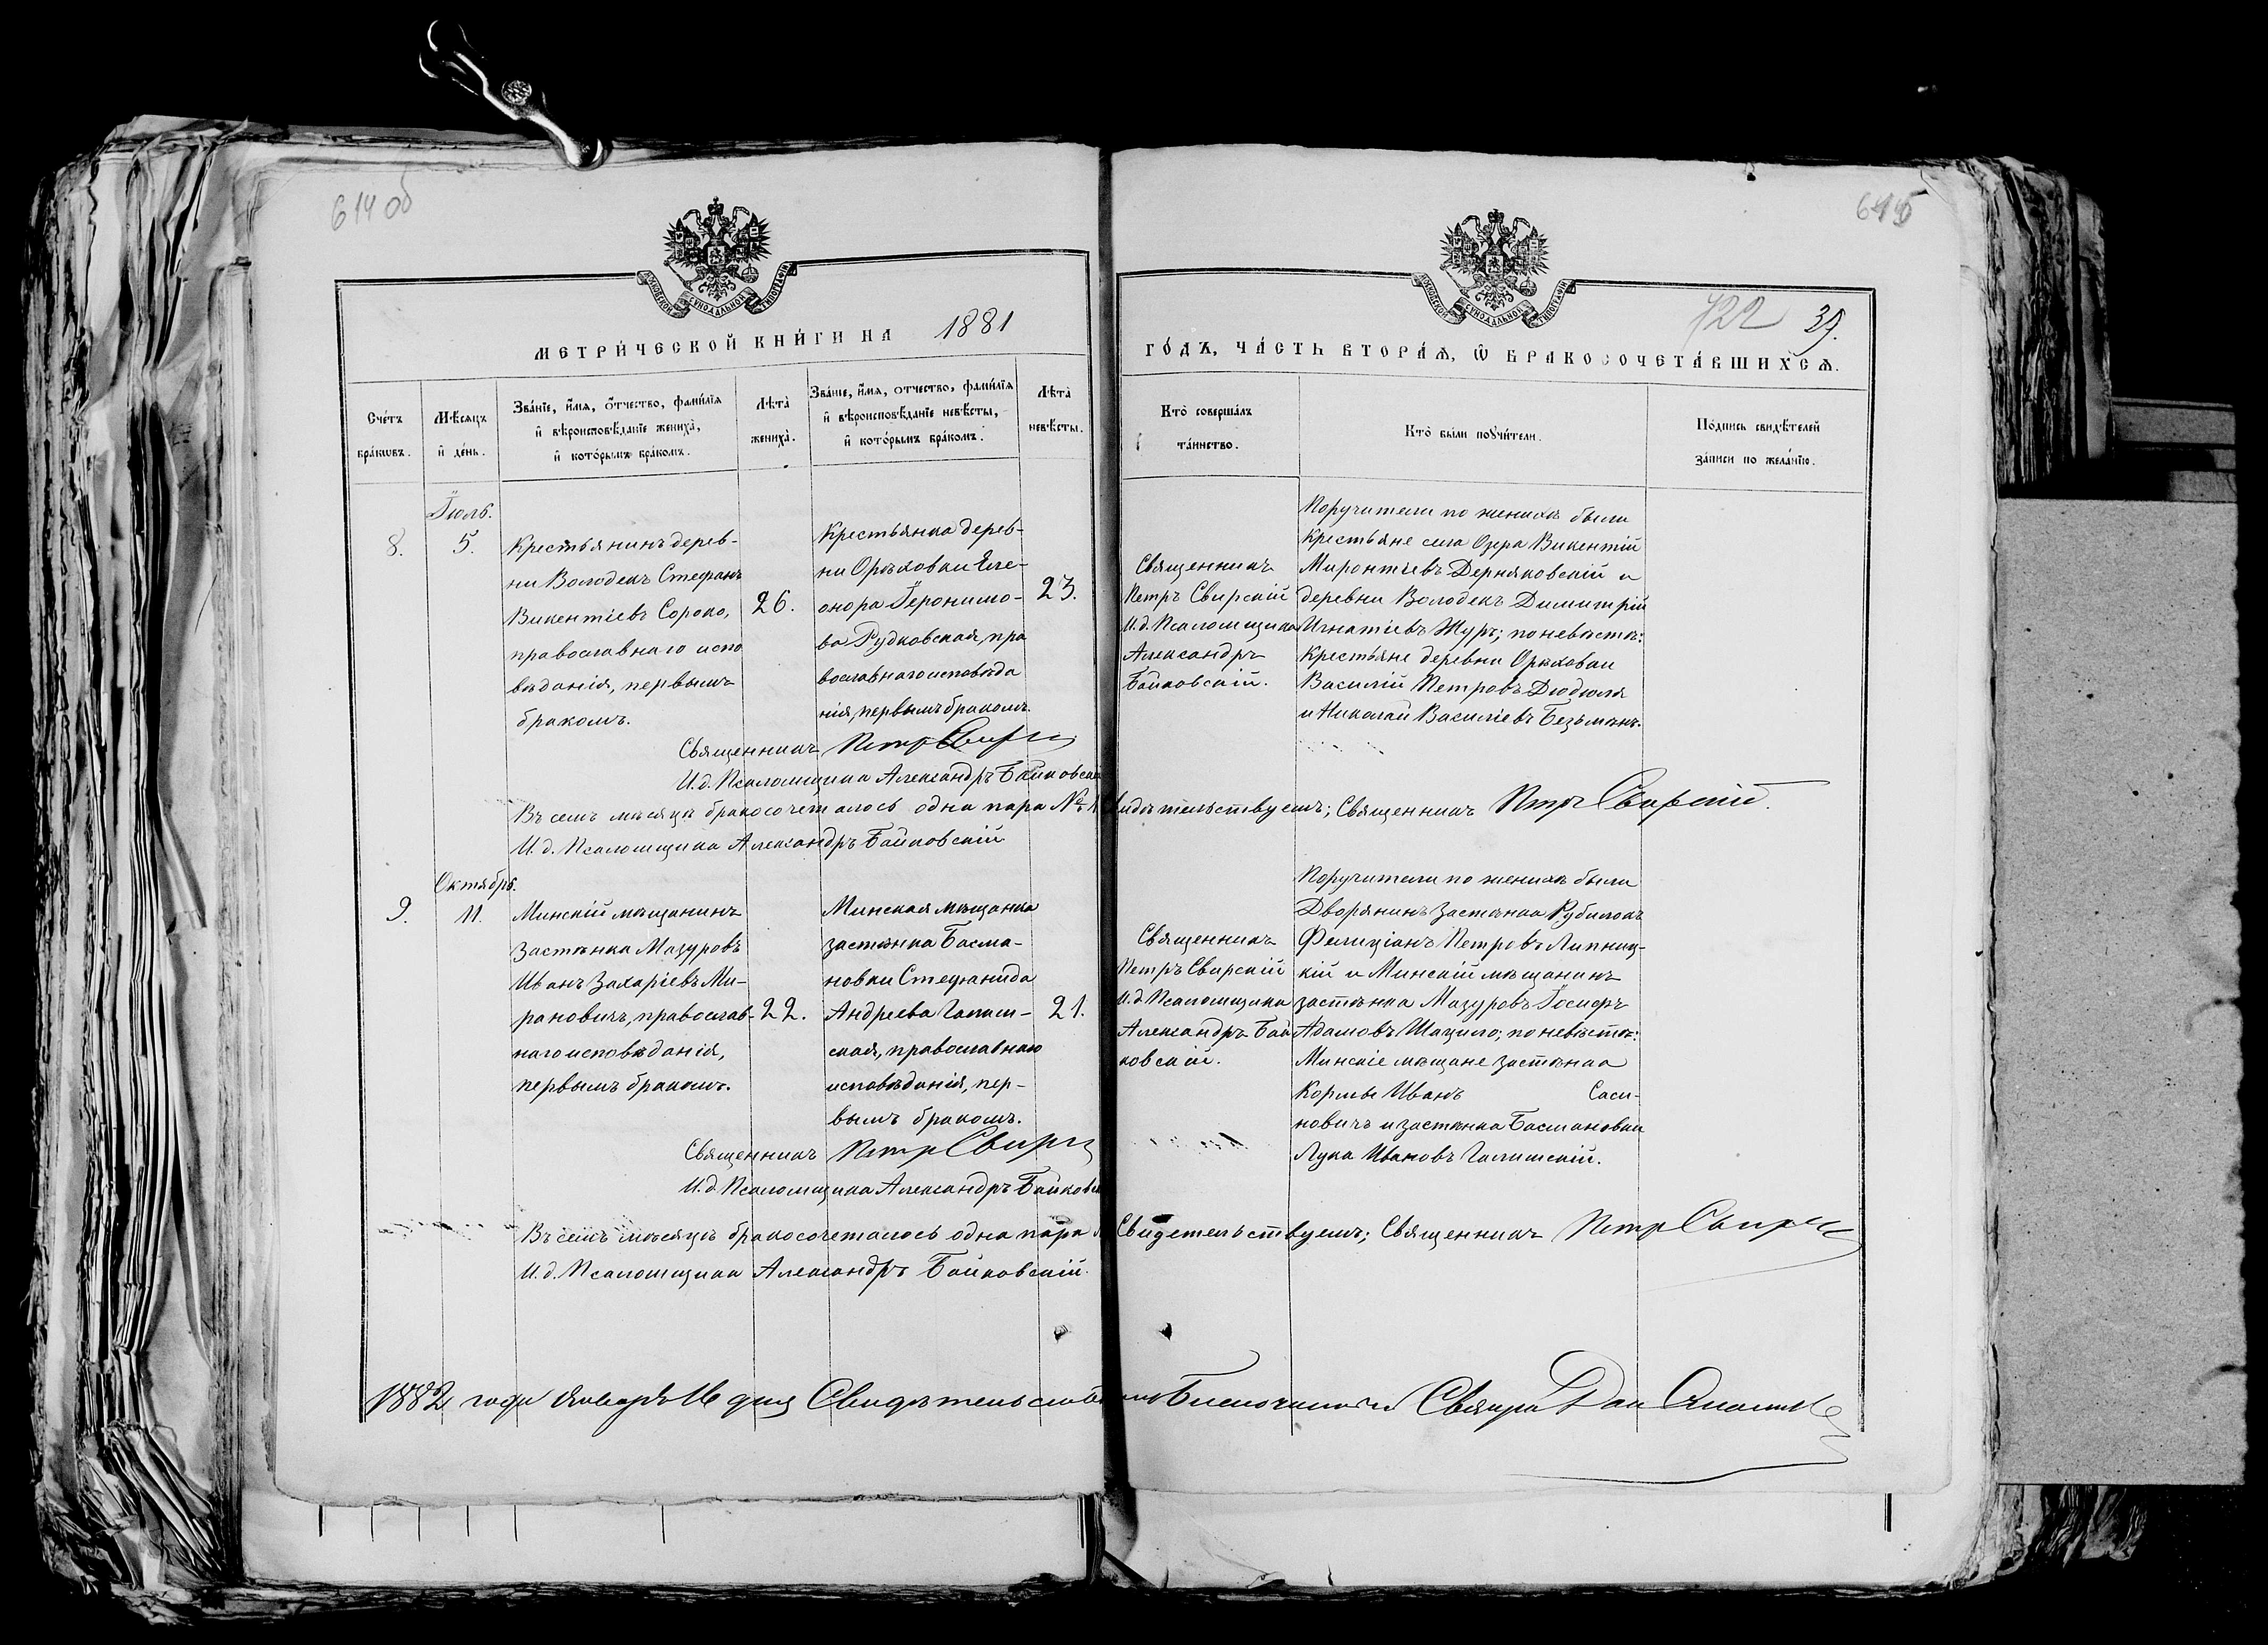 614 об
615
МОСКОВСКОЙ СѴНОДАЛЬНОЙ ТИПОГРАФІИ
МОСКОВСКОЙ СѴНОДАЛЬНОЙ ТИПОГРАФІИ
722 39.
МЕТРИ́ЧЕСКОЙ КНИ́ГИ НА 1881
ГО́ДЪ, ЧА́СТЬ ВТОРА́Ѧ, Ѿ БРАКОСОЧЕТА́ВШИХСѦ.
Сче́тъ
бра́кѡвъ.
Мѣ́сѧцъ
и҆ де́нь.
Зва́нїе, и҆́мѧ, ѻ҆́тчество, фами́лїѧ
и҆ вѣроисповѣ́данїе жениха̀,
и҆ кото́рымъ бра́комъ.
Лѣ̀та
жениха̀.
Зва́нїе, и҆́мѧ, ѻ҆́тчество, фами́лїѧ
и҆ вѣроисповѣ́данїе невѣ́сты,
и҆ кото́рымъ бра́комъ.
Лѣ̀та
невѣ́сты.
Кто̀ соверша́лъ
та́инство.
Кто̀ бы́ли порꙋчи́тели.
По́дпись свидѣ́телей
за́писи по жела́нїю.
Іюль.
8.
5.
Крестьянинъ дерев-
ни Володекъ Стефанъ
Викентіевъ Сороко,
православнаго испо
вѣданія, первымъ
бракомъ.
26.
Крестьянка дерев-
ни Орѣховки Еле-
онора Іеронимо-
ва Рудковская, пра
вославнаго исповѣда
нія, первымъ бракомъ.
23.
Священникъ
Петръ Свирскій
И. д. Псаломщика
Александръ
Байковскій.
Поручители по женихѣ были
Крестьяне села Озера Викентій
Мирontіевъ Дерняковскій и
деревни Володекъ Димитрій
Игнатіевъ Журъ; по невѣстѣ:
Крестьяне деревни Орѣховки
Василій Петровъ Дюдюля
и Николай Василіевъ Безьмѣнъ.
Священникъ Петръ Свирскій
И. д. Псаломщика Александръ Байковскій
Въ семъ мѣсяцѣ бракосочеталось одна пара № 1 Свидѣтельствуемъ; Священникъ Петръ Свирскій.
И. д. Псаломщика Александръ Байковскій
Октябрь.
9.
11.
Минскій мѣщанинъ
застѣнка Мазуровъ
Иванъ Захаріевъ Ми-
рановичъ, православ-
наго исповѣданія,
первымъ бракомъ.
22.
Минская мѣщанка
застѣнка Басма-
новки Стефанида
Андреева Галим-
ская, православнаго
исповѣданія, пер-
вымъ бракомъ.
21.
Священникъ
Петръ Свирскій
И. д. Псаломщика
Александръ Бай
ковскій.
Поручители по женихѣ были
Дворянинъ застѣнка Рубилокъ
Фелиціанъ Петровъ Липниц-
кій и Минскій мѣщанинъ
застѣнка Мазуровъ Іосифъ
Адамовъ Шацило; по невѣстѣ:
Минскіе мѣщане застѣнка
Кормы Иванъ Саси-
новичъ и застѣнка Басмановки
Лука Ивановъ Галимскій.
Священникъ Петръ Свирскій
И. д. Псаломщика Александръ Байковскій
Въ семъ мѣсяцѣ бракосочеталось одна пара Свидетельствуемъ; Священникъ Петръ Свирскій
И. д. Псаломщика Александръ Байковскій.
1882 года Января 16 дня Свидѣтельствовалъ Благочинный Священ